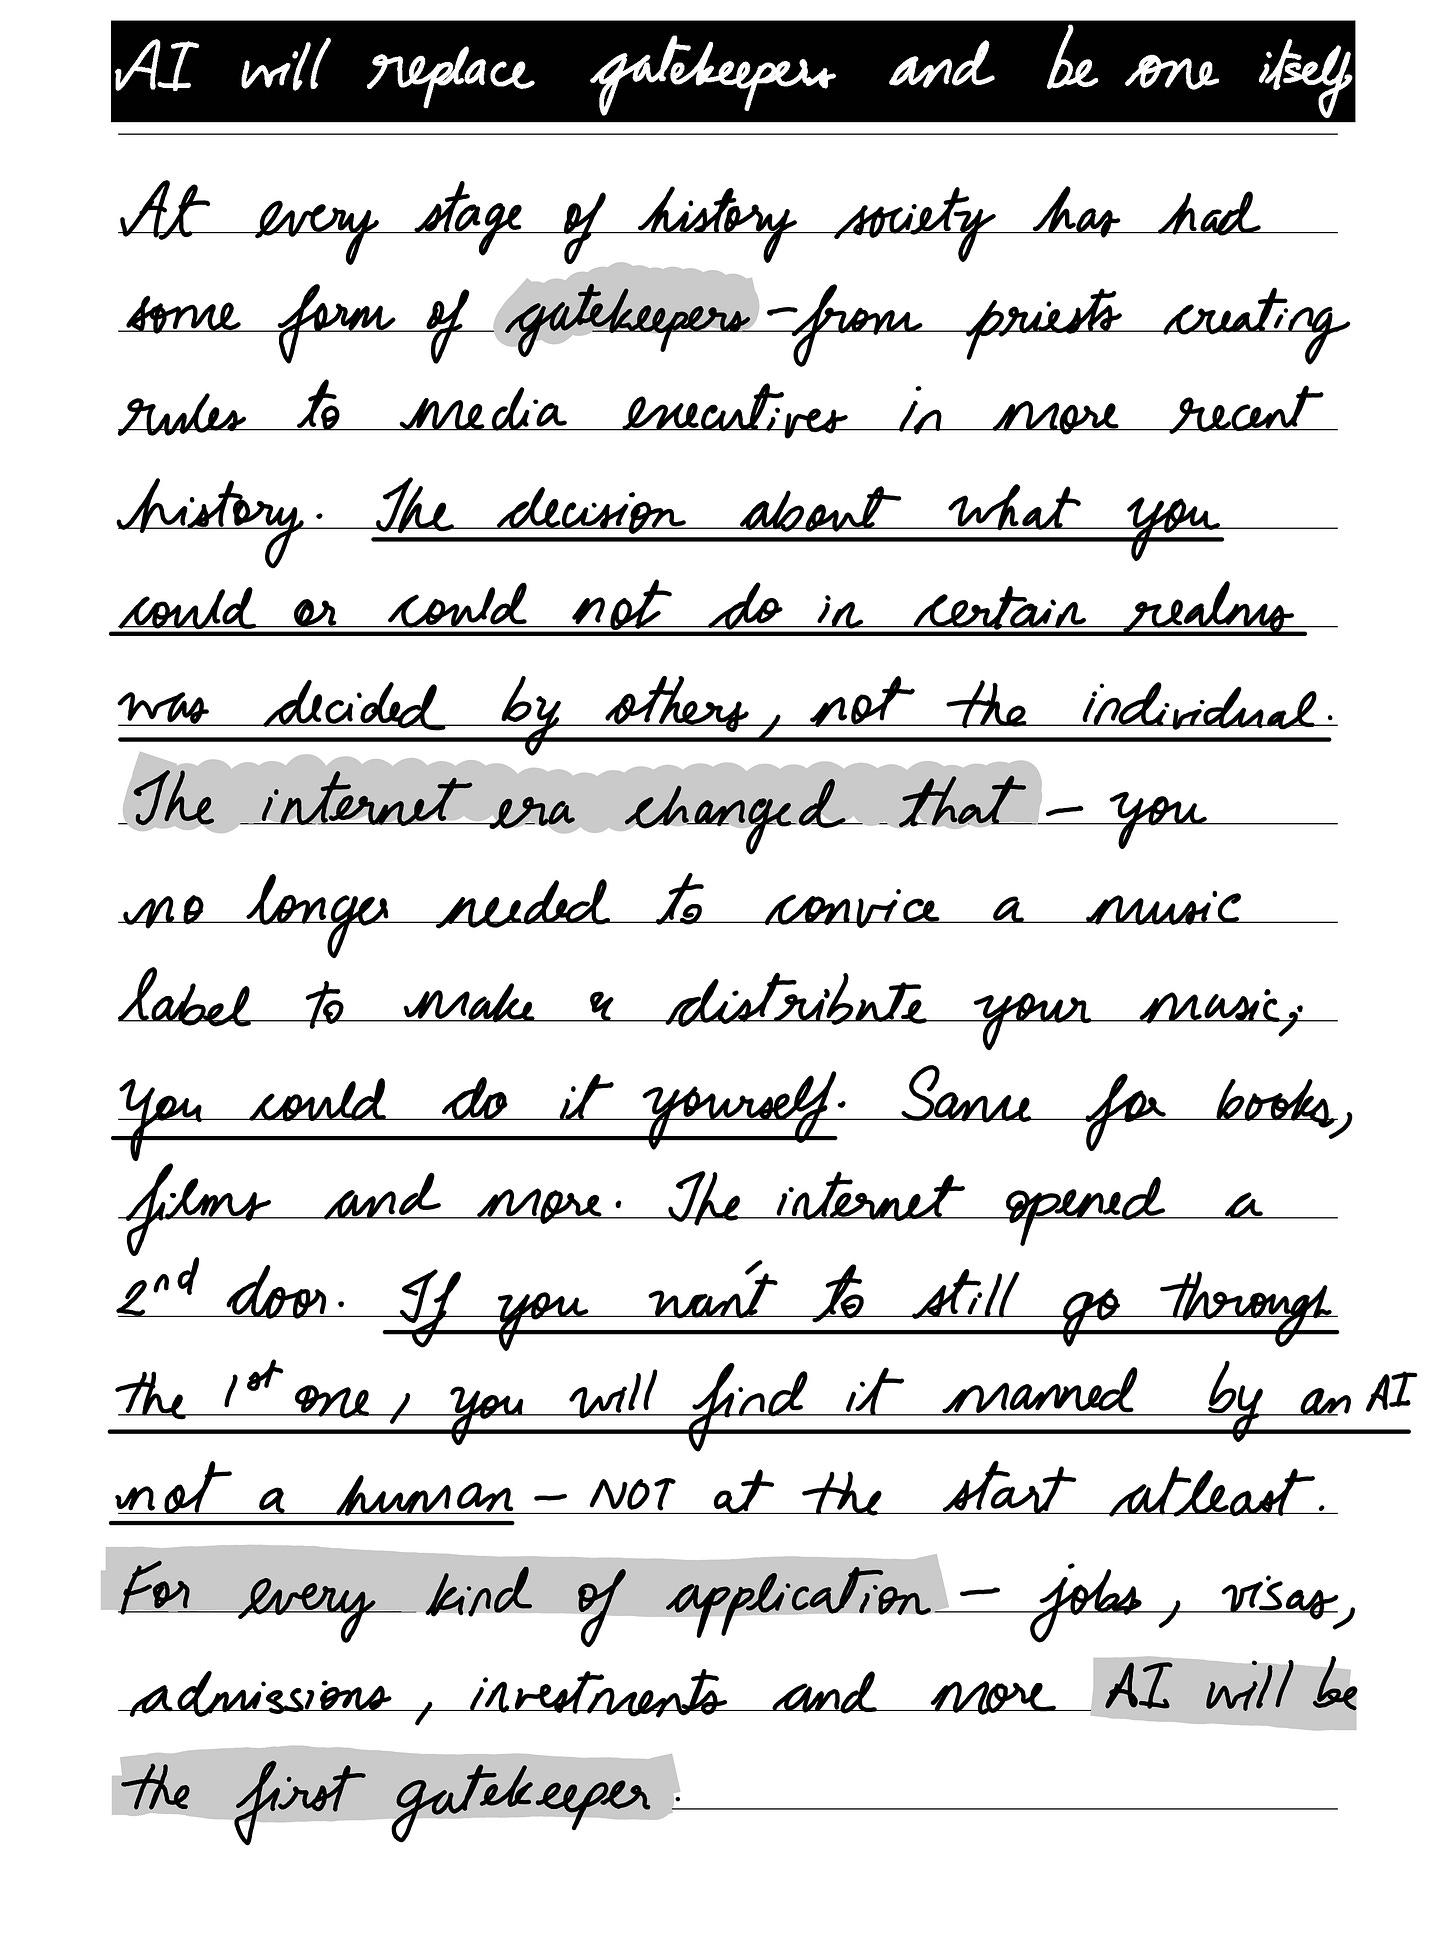 AI will replace gatekeepers and be one itself
At every stage of history society has had
some form of gatekeepers - from priests creating
rules to media executives in more recent
history. The decision about what you
could or could not do in certain realms
was decided by others, not the individual.
The internet era changed that - you
no longer needed to convice a music
label to make & distribute your music;
you could do it yourself. Same for books,
films and more. The internet opened a
2nd door. If you wan't to still go through
the 1st one, you will find it manned by an AI
not a human - NOT at the start atleast.
For every kind of application - jobs, visas,
admissions, investments and more AI will be
the first gatekeeper.